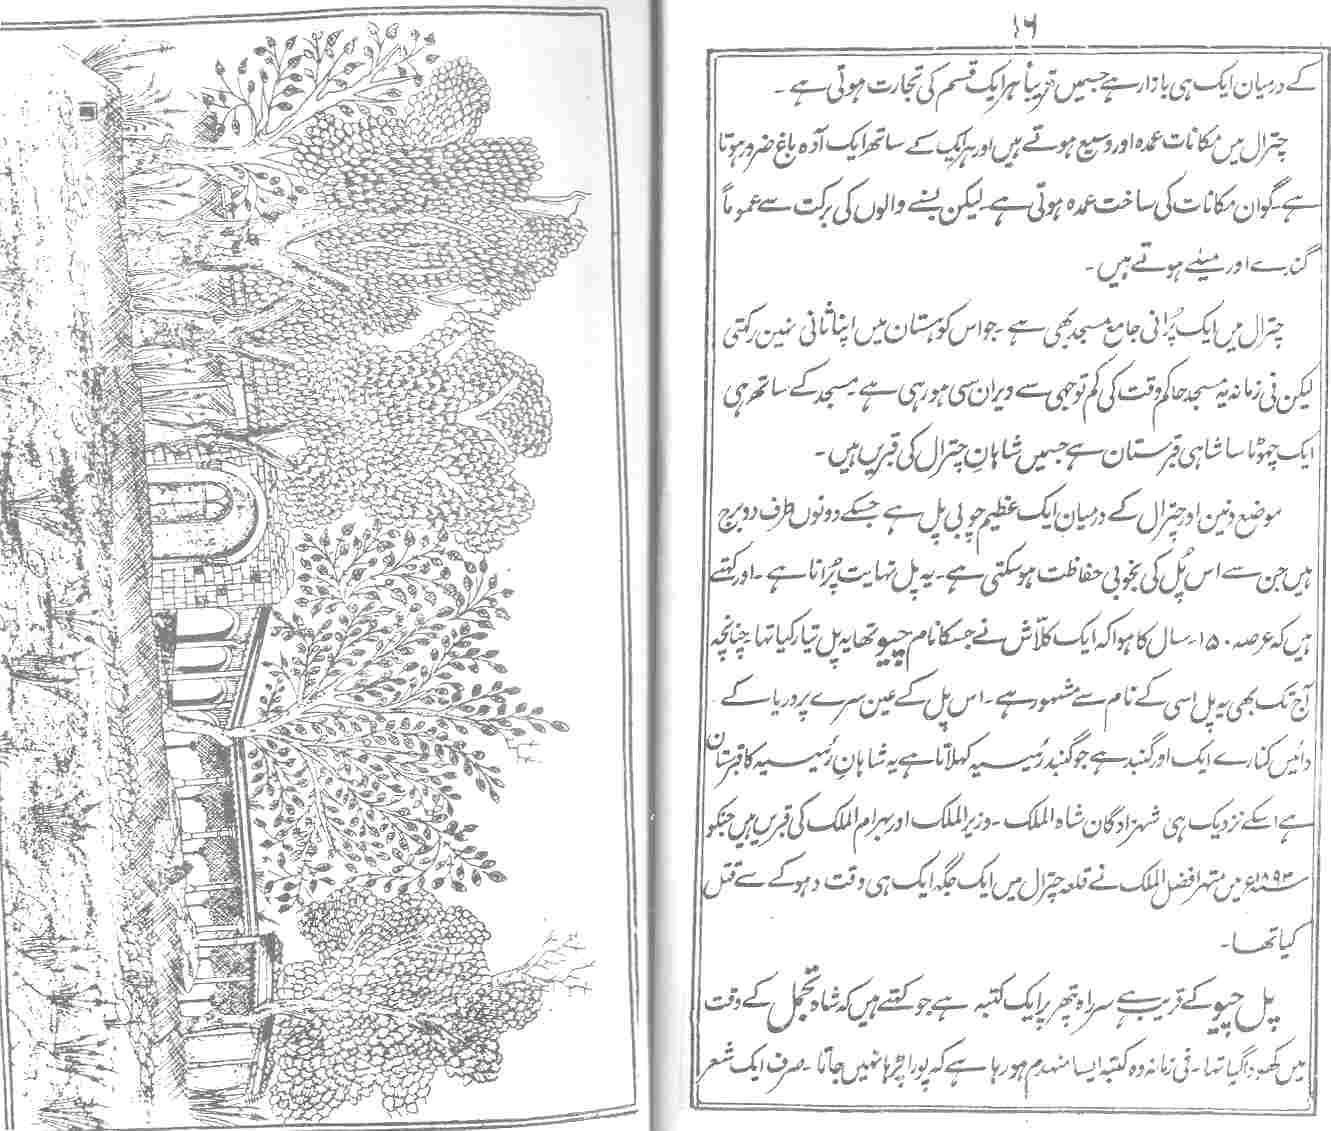 ۱۶
کے درمیان ایک ہی بازار ہے جسمیں تقریباً ہر ایک قسم کی تجارت ہوتی ہے ۔
چترال میں مکانات عمدہ اور وسیع ہوتے ہیں اور ہر ایک کے ساتھ ایک آدہ باغ ضرور ہوتا
ہے ۔ گو ان مکانات کی ساخت عمدہ ہوتی ہے ۔ لیکن بسنے والوں کی برکت سے عموماً
گندے اور میلے ہوتے ہیں ۔
چترال میں ایک پُرانی جامع مسجد بھی ہے ۔ جو اس کوہستان میں اپنا ثانی نہین رکہتی
لیکن فی زمانہ یہ مسجد حاکم وقت کی کم توجہی سے ویران سی ہو رہی ہے ۔ مسجد کے ساتھ ہی
ایک چھوٹا سا شاہی قبرستان ہے جسمیں شاہانِ چترال کی قبریں ہیں ۔
موضع دنین اور چترال کے درمیان ایک عظیم چوبی پل ہے جسکے دونوں طرف دو برج
ہیں جن سے اس پُل کی بخوبی حفاظت ہو سکتی ہے ۔ یہ پل نہایت پُرانا ہے ۔ اور کہتے
ہیں کہ عرصہ ۱۵۰ سال کا ہوا کہ ایک کلاش نے جسکا نام چیو تھا یہ پل تیار کیا تہا چنانچہ
آج تک بھی یہ پل اسی کے نام سے مشہور ہے ۔ اس پل کے عین سرے پر دریا کے
دائیں کنارے ایک اور گنبد ہے جو گنبد رئیسیہ کہلاتا ہے یہ شاہانِ رئیسیہ کا قبرستان
ہے اسکے نزدیک ہی شہزادگان شاہ الملک ۔ وزیر الملک اور بہرام الملک کی قبریں ہیں جنکو
۱۸۹۲ء میں مہتر افضل الملک نے قلعہ چترال میں ایک جگہ ایک ہی وقت دہوکے سے قتل
کیا تھا ۔
پل چیو کے قریب ہے سر راہ پتھر پر ایک کتبہ ہے جو کہتے ہیں کہ شاہ تجمل کے وقت
میں کھودا گیا تہا ۔ فی زمانہ وہ کتبہ ایسا منہدم ہو رہا ہے کہ پورا پڑہا نہیں جاتا ۔ صرف ایک شعر